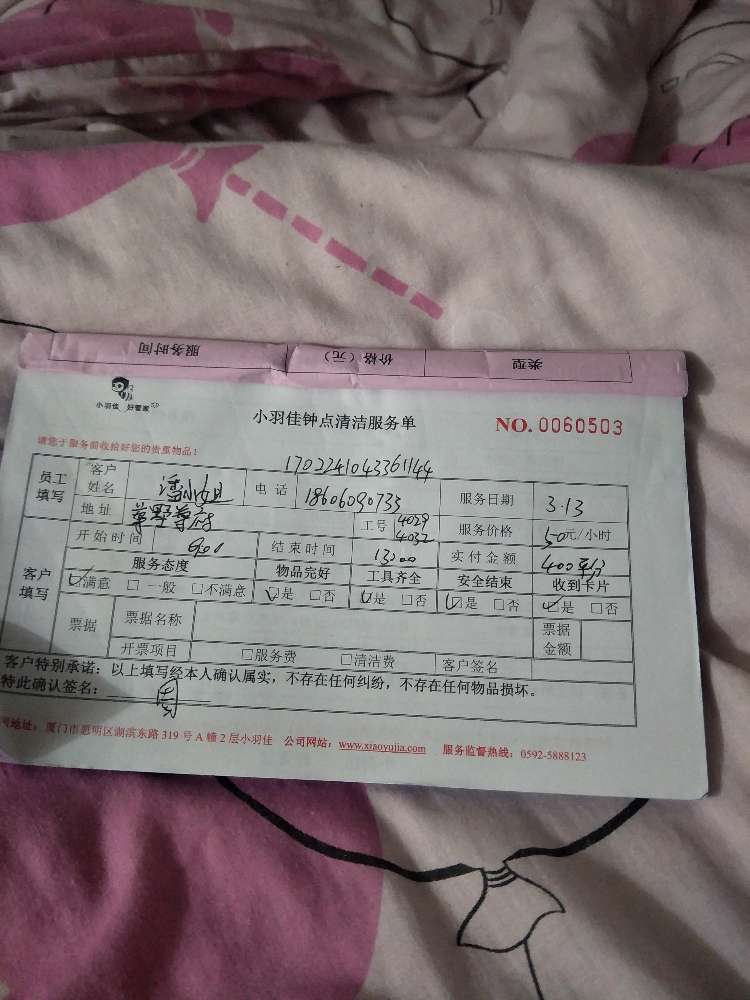 服务时间 价格（元） 类型
小羽佳 好管家
小羽佳钟点清洁服务单 NO. 0060503
请您于服务前收拾好您的贵重物品！
1702241043361144
员工填写 客户姓名 潘小姐 电话 18606090733 服务日期 3.13
地址 草野尊府 工号 4029 4032 服务价格 50元/小时
客户填写 开始时间 9:00 结束时间 13:00 实付金额 400
服务态度 物品完好 工具齐全 安全结束 收到卡片
☑满意 □一般 □不满意 ☑是 □否 ☑是 □否 ☑是 □否 ☑是 □否
票据 票据名称 票据金额
开票项目 □服务费 □清洁费 客户签名
客户特别承诺：以上填写经本人确认属实，不存在任何纠纷，不存在任何物品损坏。
特此确认签名：
司地址：厦门市思明区湖滨东路 319 号 A 幢 2 层小羽佳 公司网站：www.xiaoyujia.com 服务监督热线：0592-5888123